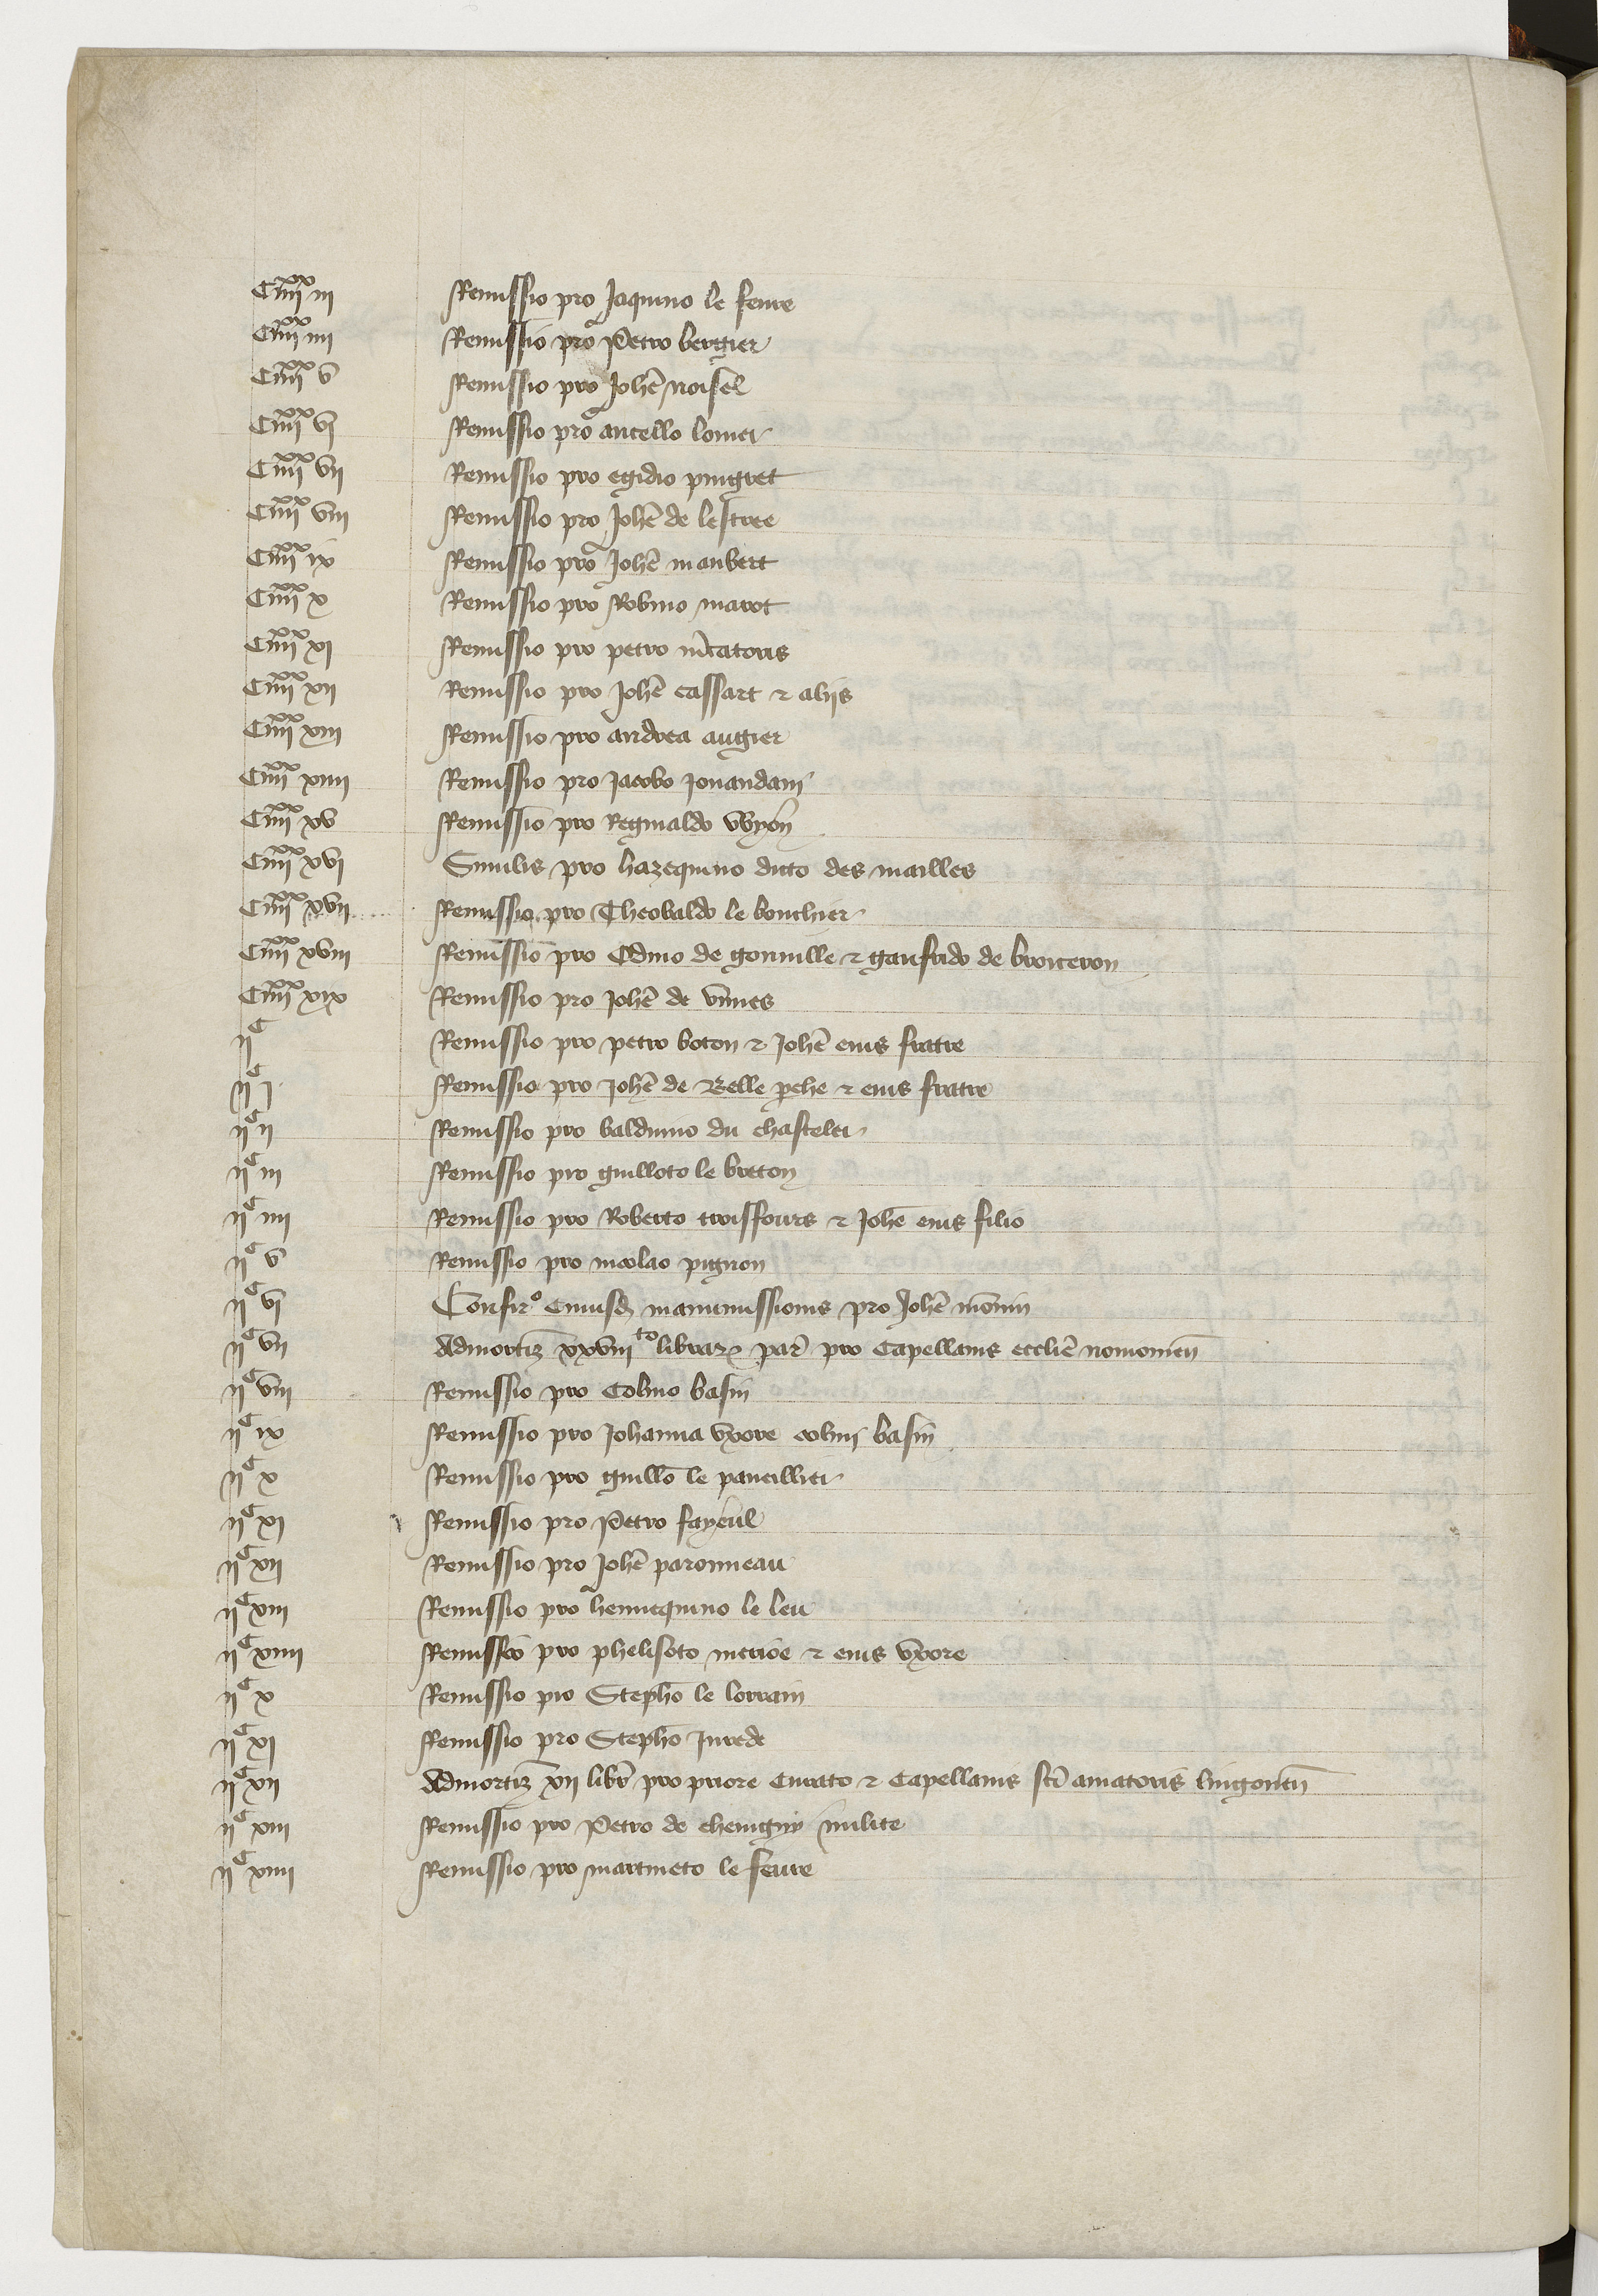 Ciiiixx iii Remissio pro Jaquino le fevre
Ciiiixx iiii Remissio pro Petro bergier
Ciiiixx v Remissio pro Johē noisel
Ciiiixx vj Remissio pro ancello
Ciiiixx vii Remissio pro egidio pingret
Ciiiixx viii Remissio pro Johē de lestree
Ciiiixx ix Remissio pro Johē maubert
Ciiiixx x Remissio pro Robino marot
Ciiiixx xi Remissio pro petro m̄catoris
Ciiiixx xii Remissio pro Johē cassart ⁊ aliis
Ciiiixx xiii Remissio pro andrea augier
Ciiiixx xiiii Remissio pro Jacobo Jouandani
Ciiiixx xv Remissio pro Reginaldo
Ciiiixx xvi Similis pro hazequino dicto des mailles
Ciiiixx xvii Remissio pro Theobaldo le bouchier
Ciiiixx xviii Remissio pro Odino de gonville ⁊ gaufrido de broiceron
Ciiiixx xix Remissio pro Johē de vinnes
iiC Remissio pro petro boton ⁊ Johē eius fratre
iiC j Remissio pro Johē de Belle perche ⁊ eius fratre
iiC ii Remissio pro balduino du chastelet
iiC iii Remissio pro guilloto le breton
iiC iiii Remissio pro Roberto troisfours ⁊ Johē eius filio
iiC v Remissio pro nicolao pignon
iiC vj Confirº cuiusd manumissionis pro Johē monin
iiC vii Admortiz xxviiito librar par pro Capellanis ecclie noviomen
iiC viii Remissio pro Colino basin
iiC ix Remissio pro Johanna uxore colini basin
iiC x Remissio pro guillo le
iiC xi Remissio pro Petro fayeul
iiC xii Remissio pro Johē paronneau
iiC xiii Remissio pro hennequino le leu
iiC xiiii Remissio pro phelisoto ⁊ eius uxore
iiC x Remissio pro Stepho le lorrain
iiC xi Remissio pro Stepho Jurede
iiC xii Admortiz xii libr pro priore Curato ⁊ Capellanis sci amatoris lingonen
iiC xiii Remissio pro Petro de chevigny milite
iiC xiiii Remissio pro martineto le fevre